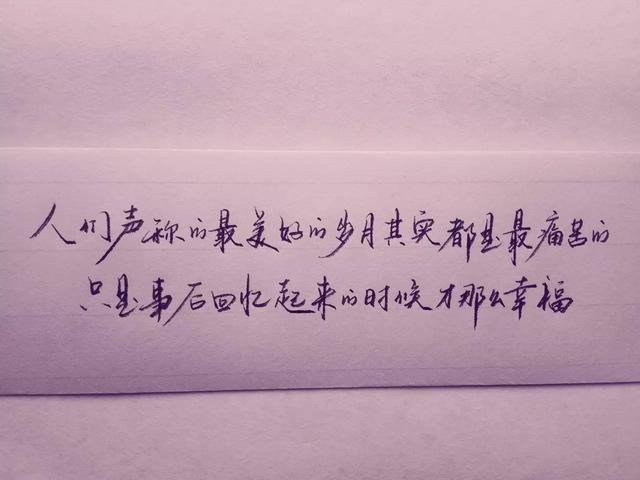 人们声称的最美好的岁月其实都是最痛苦的
只是事后回忆起来的时候才那么幸福